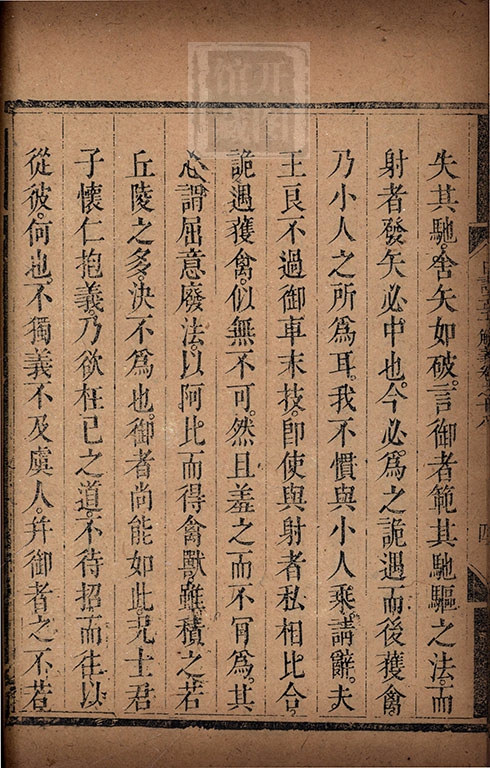 失其馳。舍矢如破。言御者範其馳驅之法。而
射者發矢必中也。今必爲之詭遇而後獲禽。
乃小人之所爲耳。我不慣與小人乘。請辭。夫
王良不過御車末技。卽使與射者私相比合。
詭遇獲禽。似無不可。然且羞之而不肎爲。其
心謂屈意廢法。以阿比而得禽獸。雖積之若
丘陵之多。決不爲也。御者尚能如此。况士君
子懷仁抱義。乃欲枉已之道。不待招而往。以
從彼。何也。不獨義不及虞人。幷御者之不若